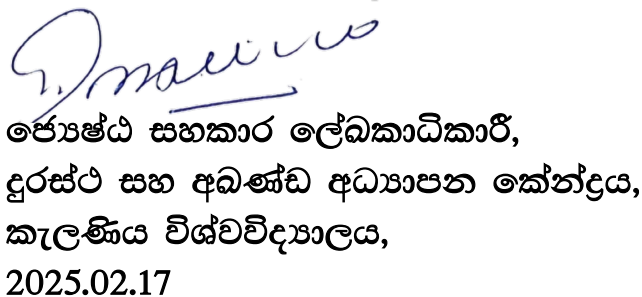 ජ්‍යෙෂ්ඨ සහකාර ලේඛකාධිකාරී,
දුරස්ථ සහ අඛණ්ඩ අධ්‍යාපන කේන්ද්‍රය,
කැලණිය විශ්වවිද්‍යාලය,
2025.02.17